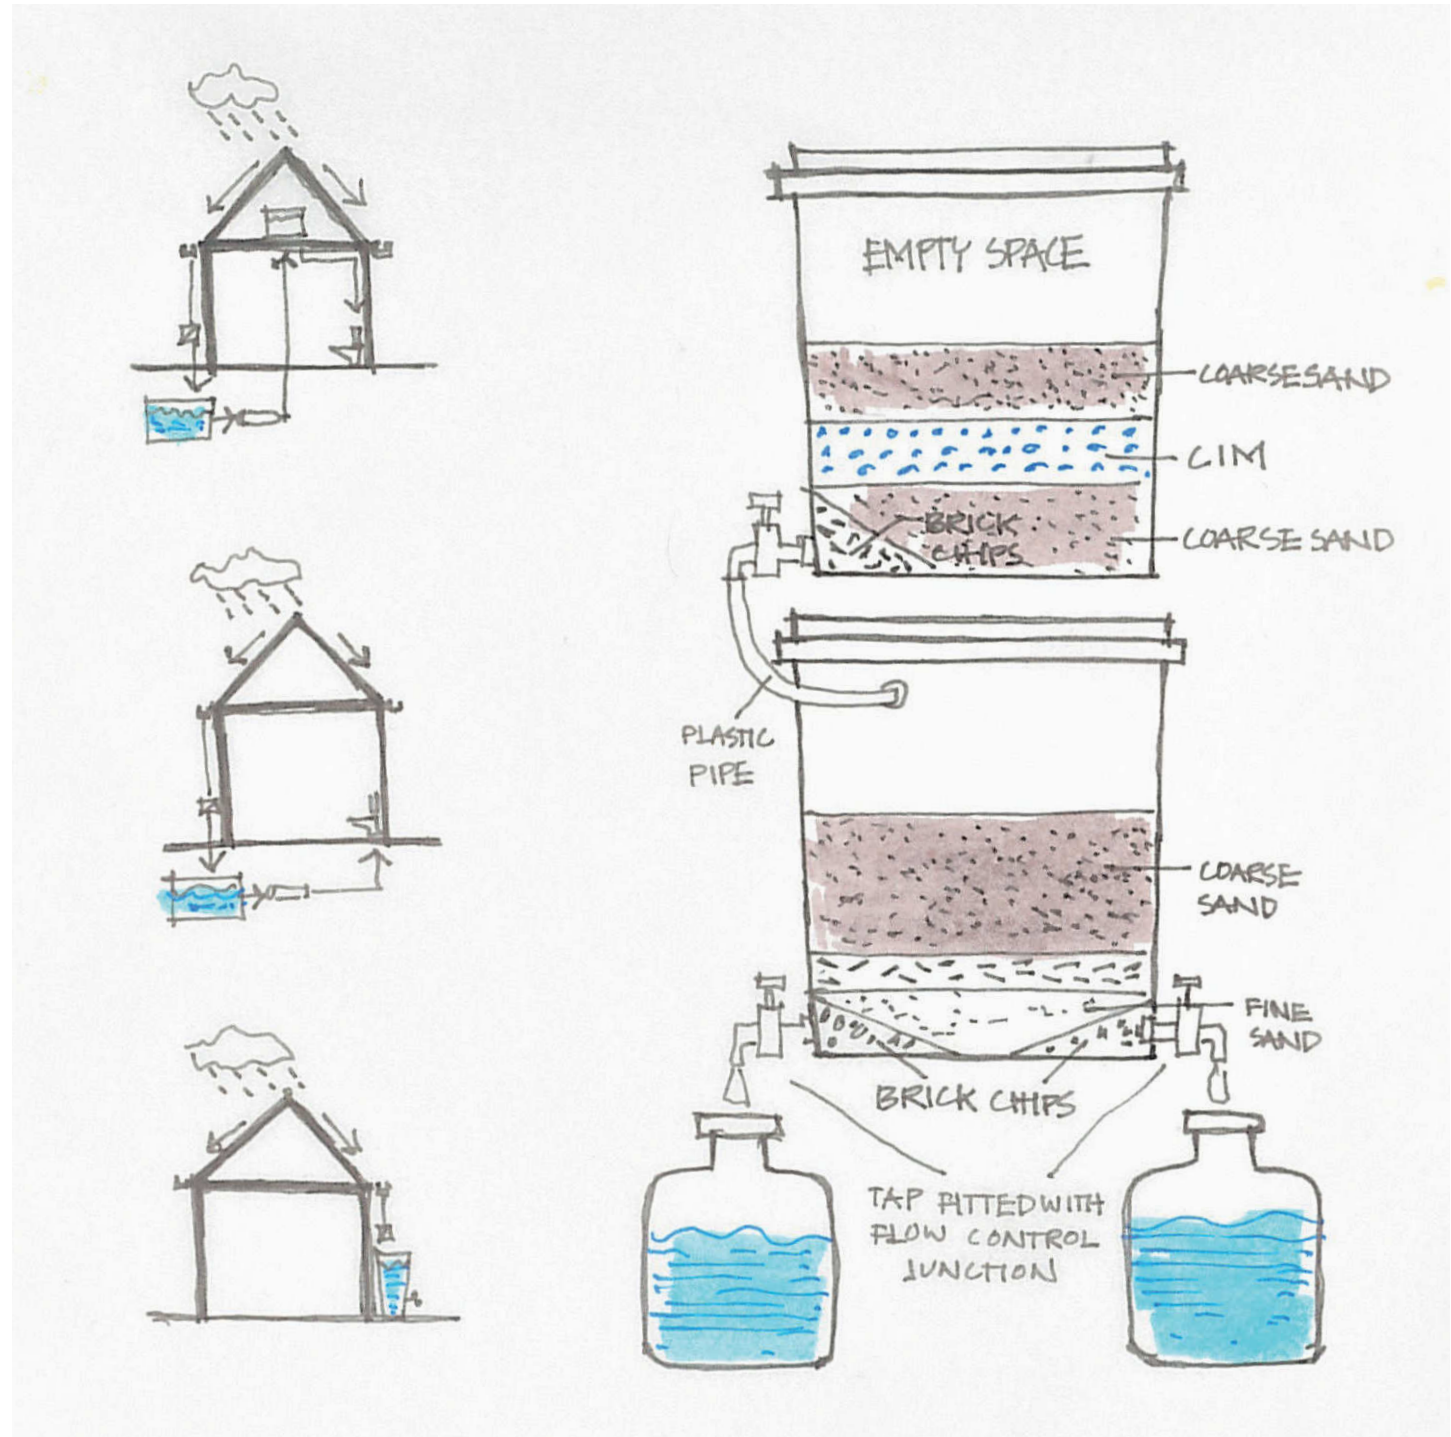 EMPTY SPACE
COARSE SAND
CIM
BRICK
CHIPS
COARSE SAND
PLASTIC
PIPE
COARSE
SAND
FINE
SAND
BRICK CHIPS
TAP FITTED WITH
FLOW CONTROL
JUNCTION